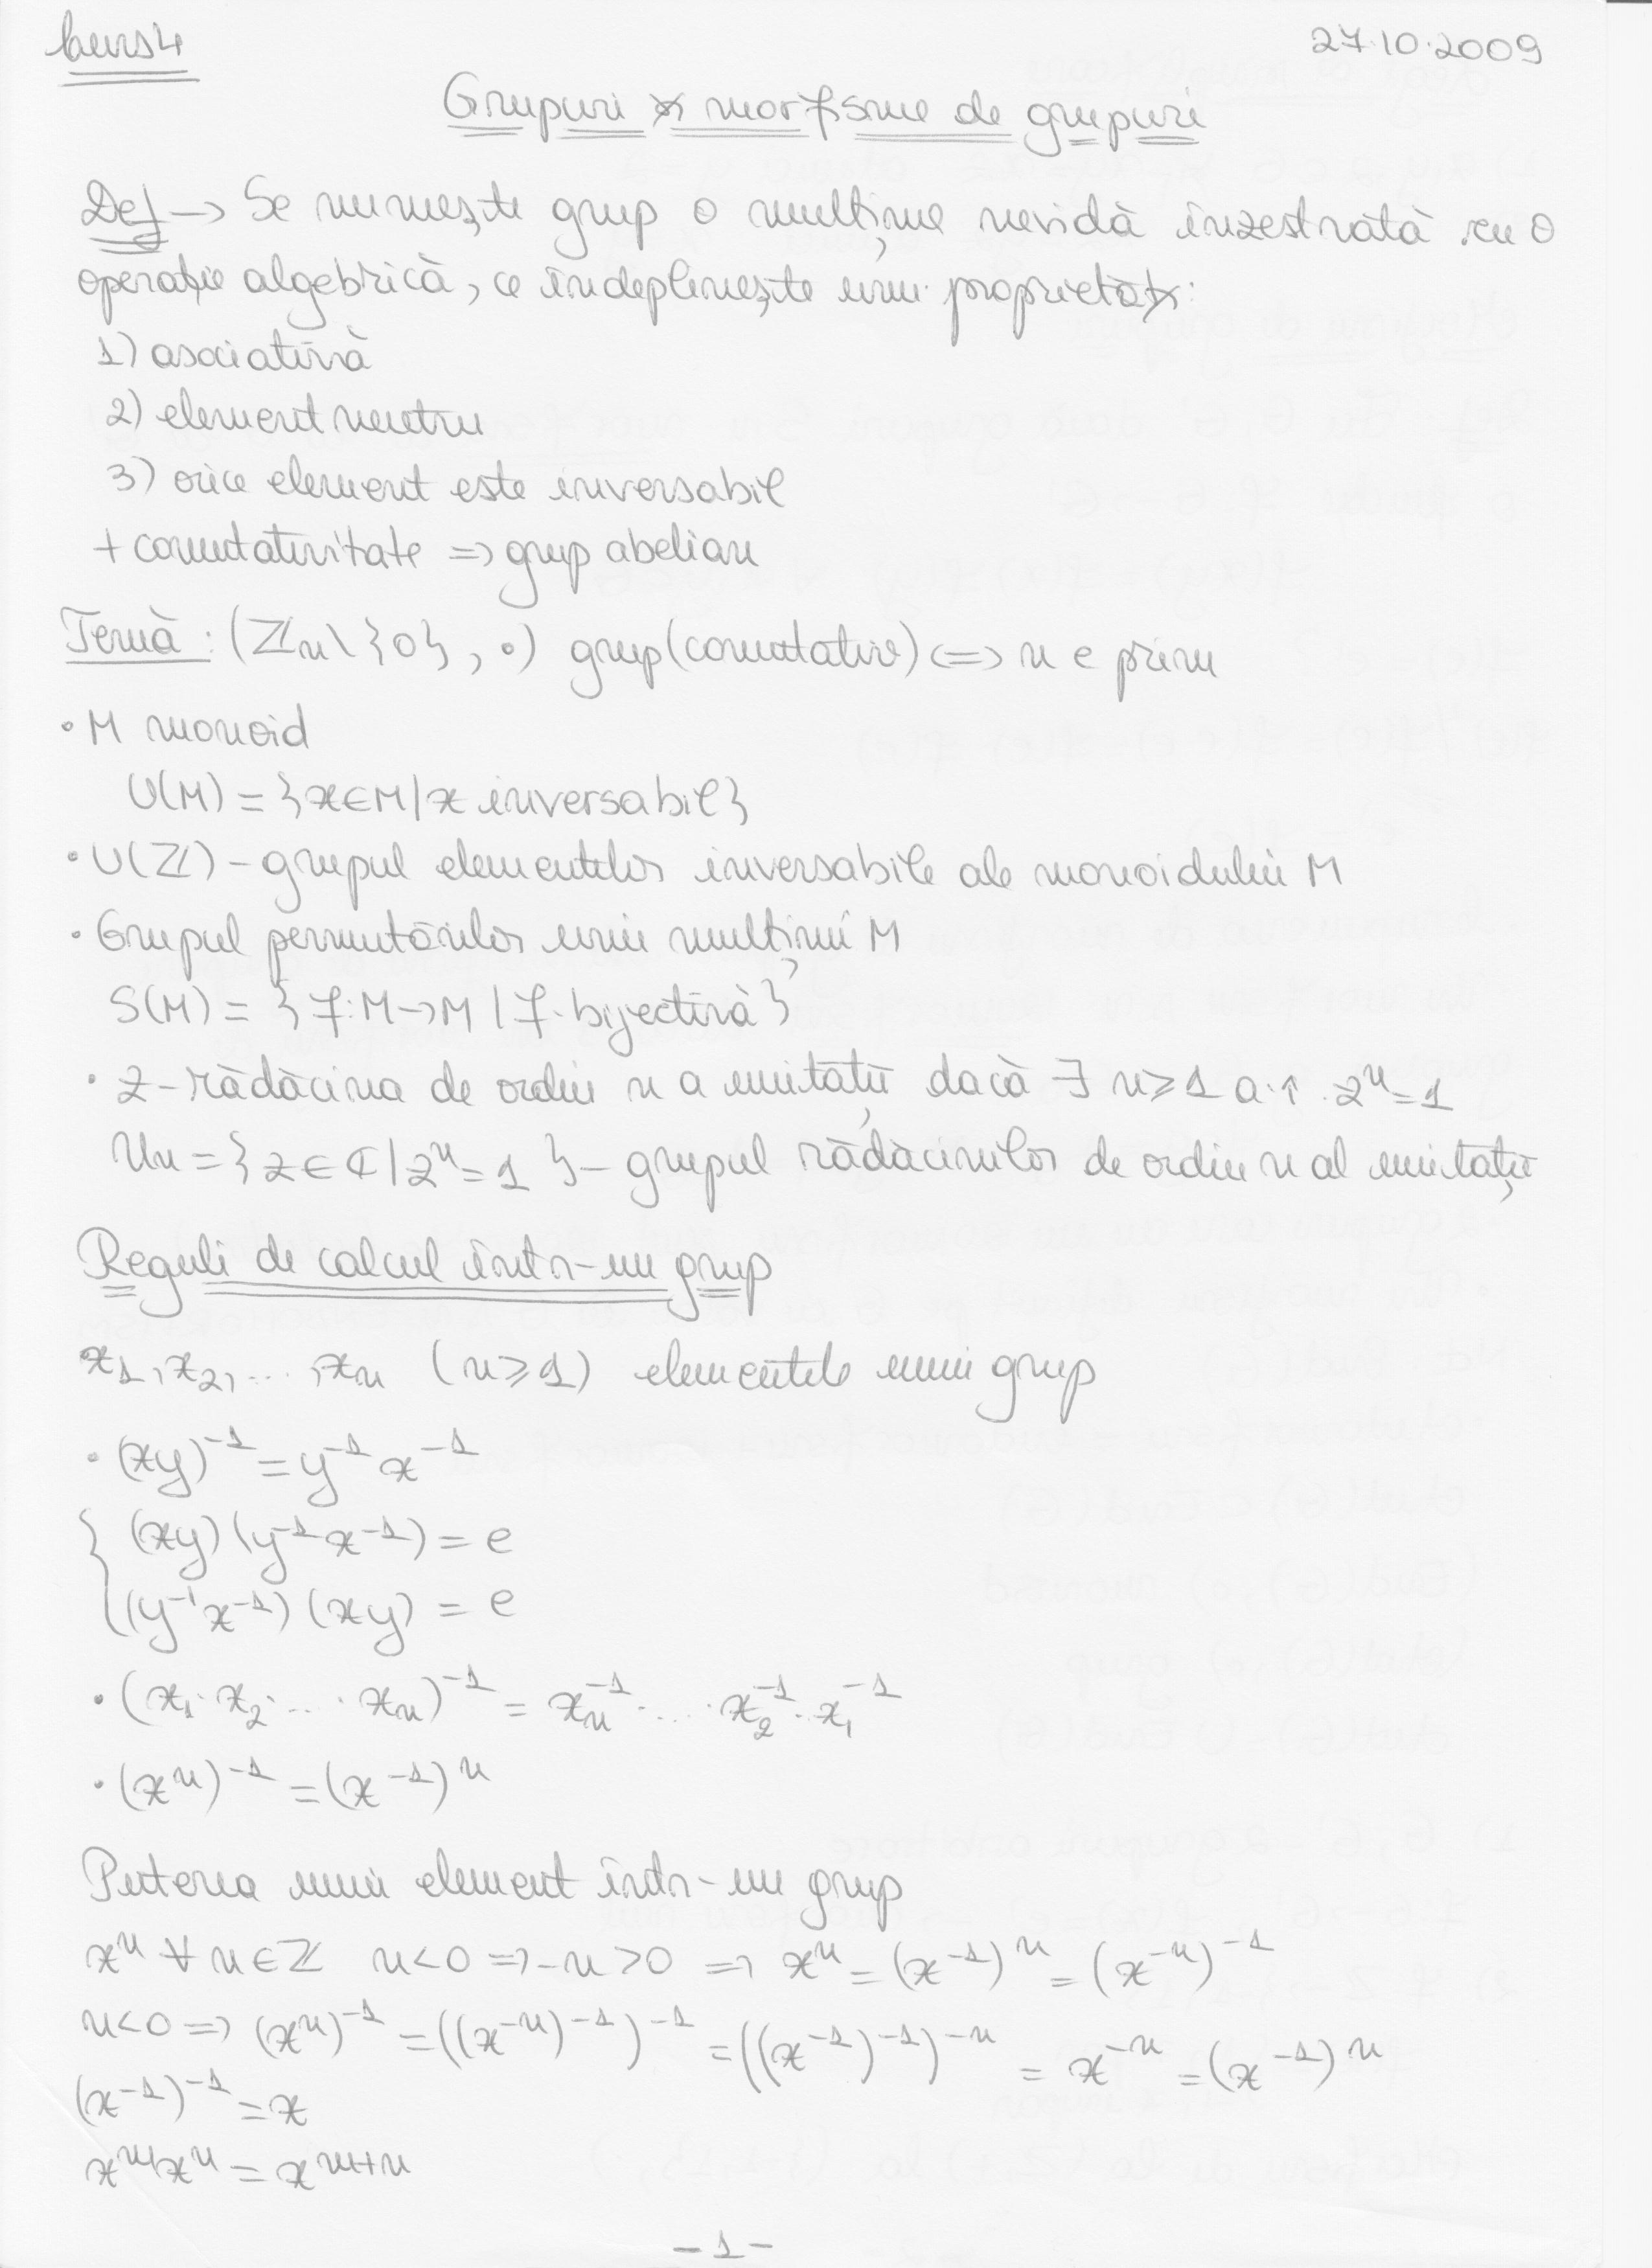 Curs 4
27.10.2009
Grupuri și morfisme de grupuri
Def → Se numește grup o mulțime nevidă înzestrată cu o
operație algebrică, ce îndeplinește unu. proprietăți:
1) asociativă
2) element neutru
3) orice element este inversabil
+ comutativitate => grup abelian
Temă: (ℤn\{0}, ∘) grup (comutativ) <=> n e prim
• M monoid
U(M) = {x∈M/x inversabil}
• U(ℤ) - grupul elementelor inversabile ale monoidului M
• Grupul permutărilor unei mulțimi M
S(M) = {f: M→M / f. bijectivă}
• z - rădăcina de ordin n a unității dacă ∃ n≥1 a.î. zⁿ=1
Un = {z∈ℂ/zⁿ=1} - grupul rădăcinilor de ordin n al unității
Reguli de calcul într-un grup
x₁, x₂, ..., xn (n≥1) elementele unui grup
• (xy)⁻¹ = y⁻¹x⁻¹
{ (xy)(y⁻¹x⁻¹) = e
(y⁻¹x⁻¹)(xy) = e
• (x₁·x₂·...·xn)⁻¹ = xn⁻¹·...·x₂⁻¹·x₁⁻¹
• (xⁿ)⁻¹ = (x⁻¹)ⁿ
Puterea unui element într-un grup
xⁿ ∀ n∈ℤ n<0 => -n>0 => xⁿ = (x⁻¹)ⁿ = (x⁻ⁿ)⁻¹
n<0 => (xⁿ)⁻¹ = ((x⁻ⁿ)⁻¹)⁻¹ = ((x⁻¹)⁻¹)⁻ⁿ = x⁻ⁿ = (x⁻¹)ⁿ
(x⁻¹)⁻¹ = x
xᵐxⁿ = xᵐ⁺ⁿ
- 1 -